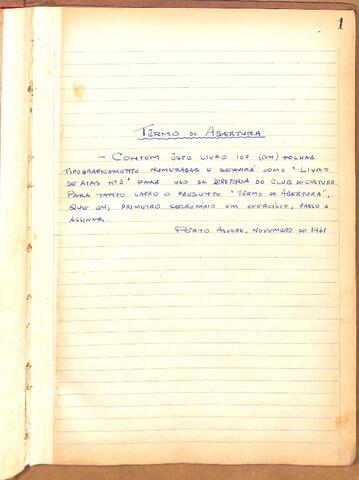 1
TÊRMO DE ABERTURA
- CONTÉM ÊSTE LIVRO 100 (CEM) FOLHAS
TIPOGRAFICAMENTE NUMERADAS E SERVIRÁ COMO "LIVRO
DE ATAS Nº 3" PARA USO DA DIRETORIA DO CLUB DE CULTURA.
PARA TANTO LAVRO O PRESENTE "TÊRMO DE ABERTURA",
QUE EU, PRIMEIRO SECRETÁRIO EM EXERCÍCIO, PASSO A
ASSINAR.
PÔRTO ALEGRE, NOVEMBRO DE 1961